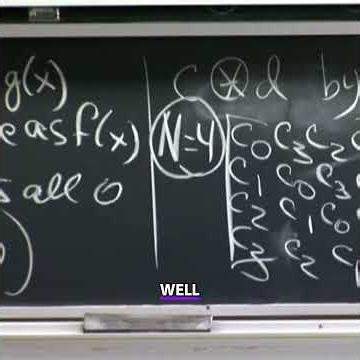 g(x)
e as f(x)
s all 0
)
c ⊛ d by
N=4
C0 C3 C2
C1 C0 C3
C2 C1 C0
C3 C2 C
WELL